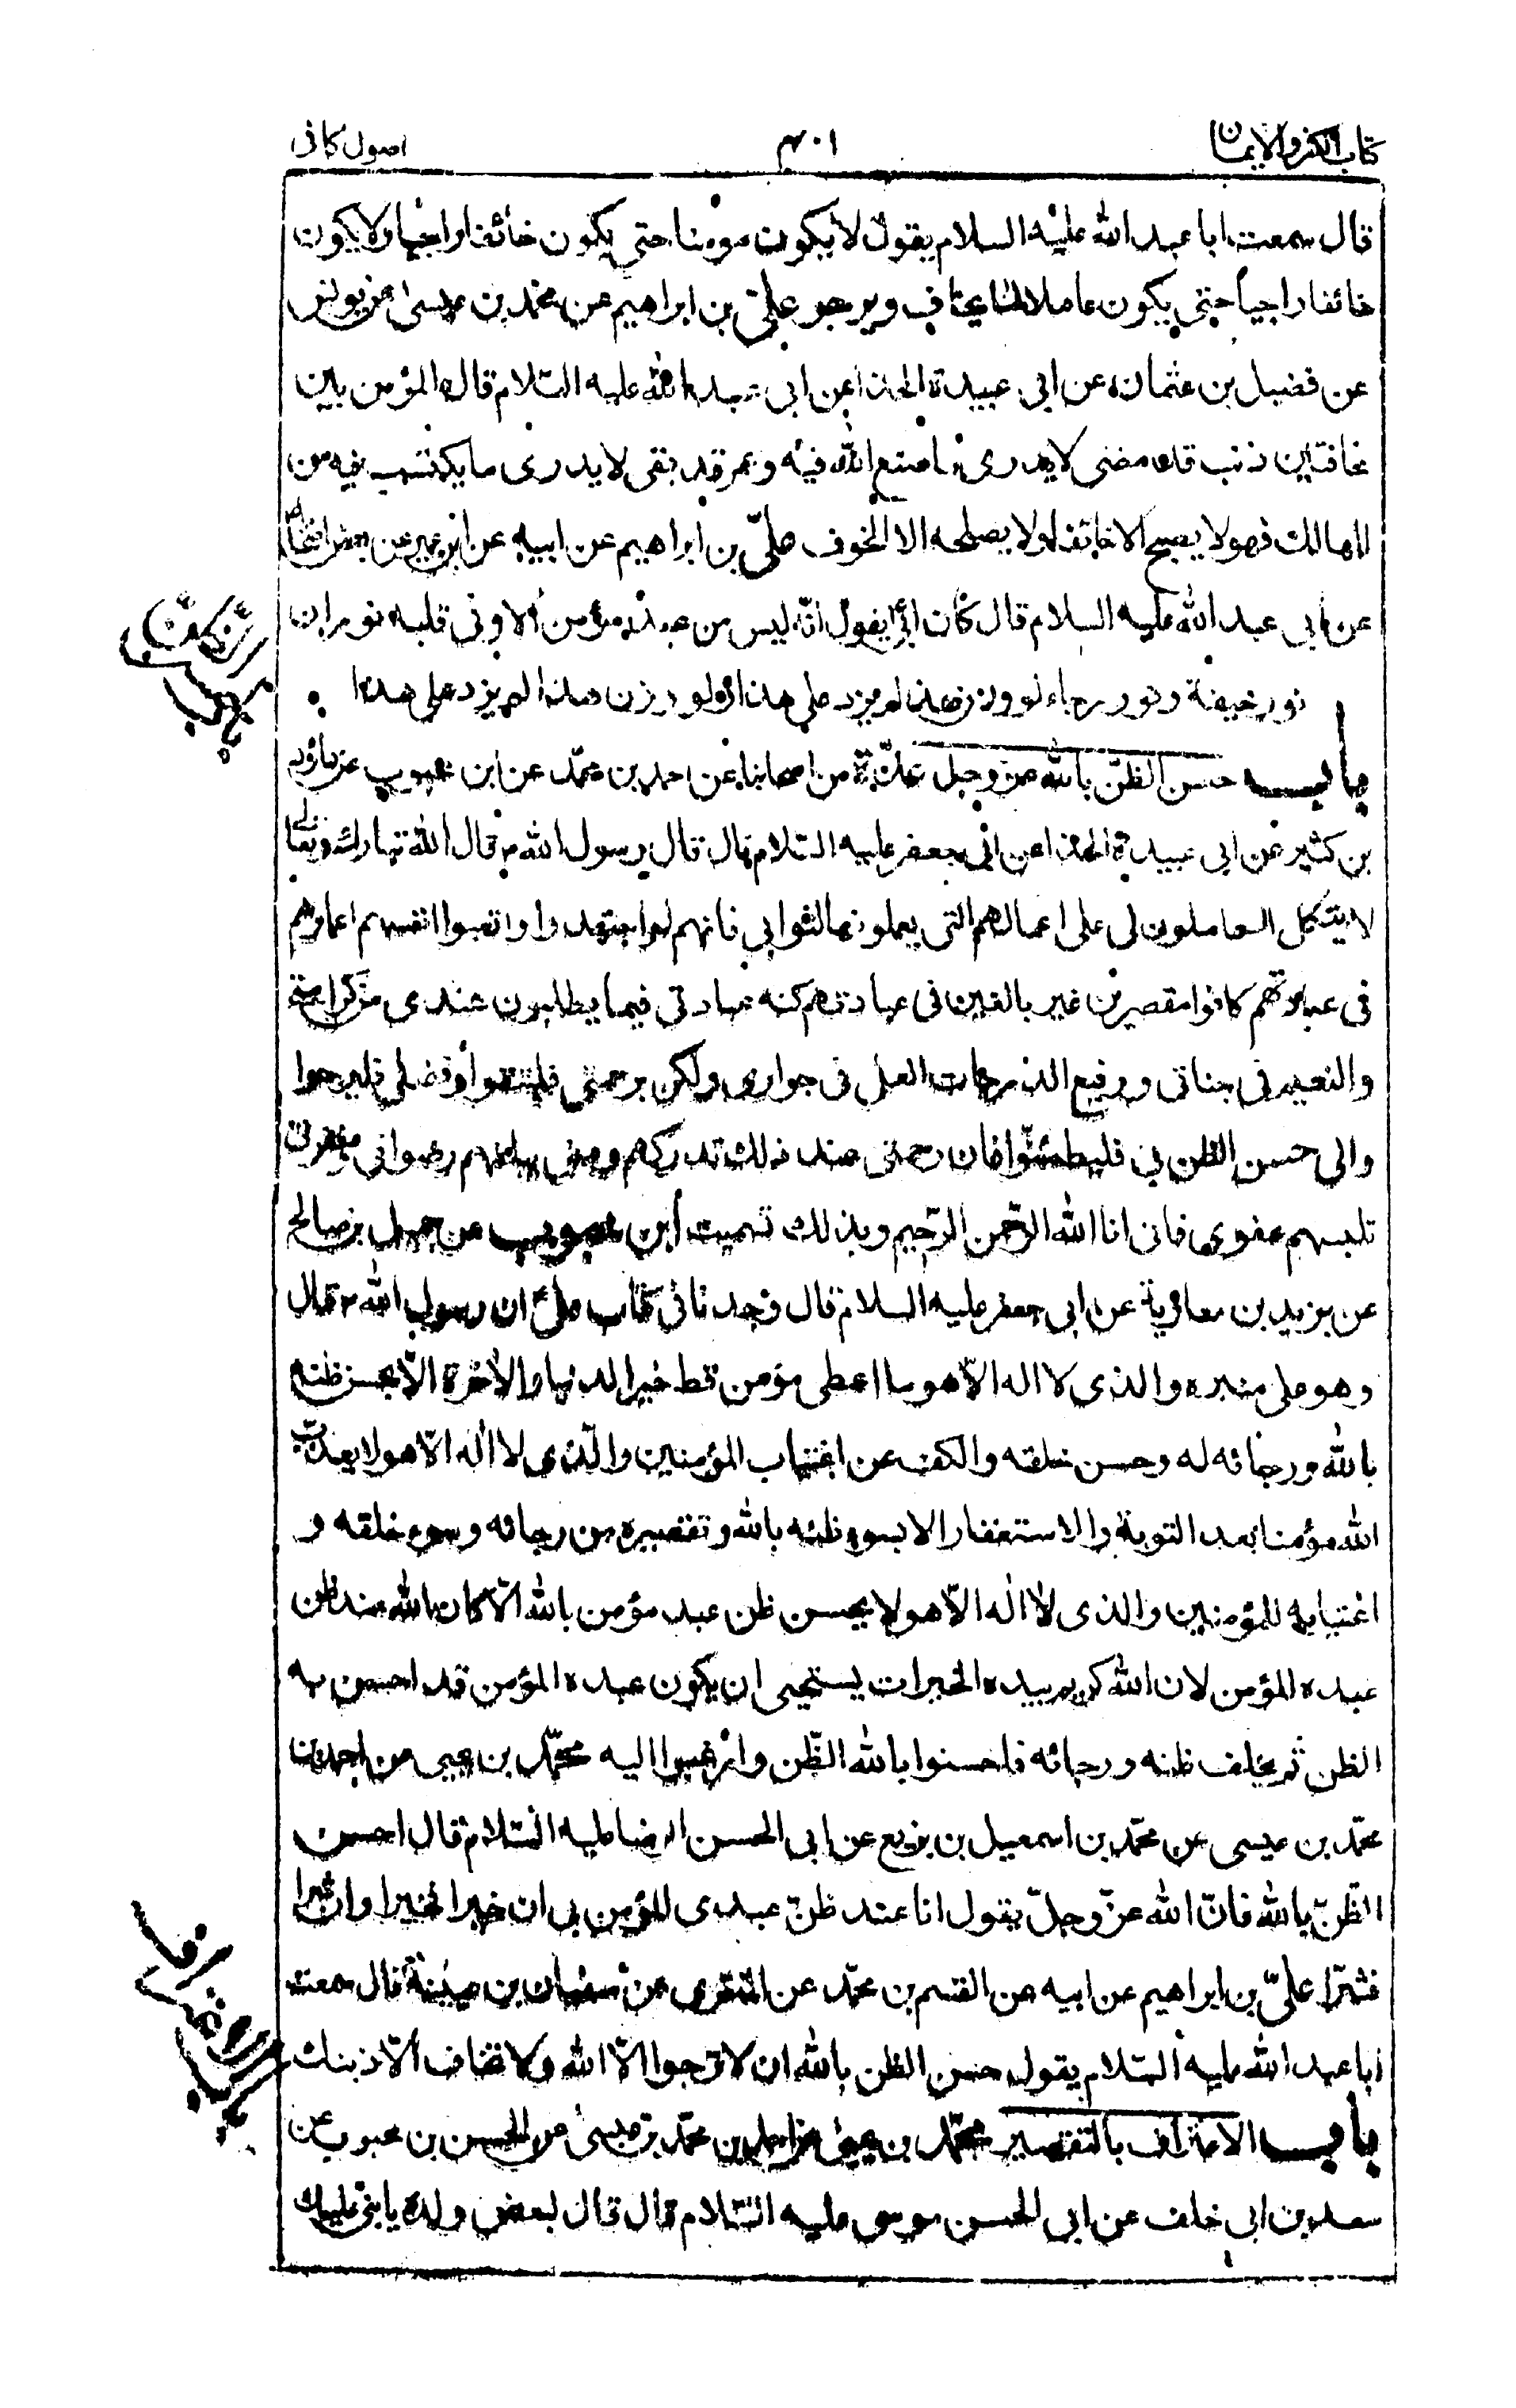 كتاب الكفر والايمان
٤٠١
اصول كافى
قال سمعت ابا عبد الله عليه السلام يقول لا يكون مومنا حتى يكون خائفا راجيا ولا يكون
خائفا راجياً حتى يكون عاملا لما يخاف ويرجو علىّ بن ابراهيم عن محمد بن عيسى عن يونس
عن فضيل بن عثمان عن ابى عبيدة الحذاء عن ابى عبد الله عليه السّلام قال المؤمن بين
مخافتين ذنب قد مضى لا يدرى ما صنع الله فيه وعمر قد بقى لا يدرى ما يكتسب فيه من
المهالك فهو لا يصبح الا خائفا ولا يصلحه الا الخوف علىّ بن ابراهيم عن ابيه عن ابن ابى عمير عن بعض اصحابه
عن ابى عبد الله عليه السلام قال كان ابى يقول انّه ليس من عبد مؤمن الا وفى قلبه نوران
نور خيفة ونور رجاء لو وزن هذا لم يزد على هذا ولو وزن هذا لم يزد على هذا
باب حسن الظنّ بالله عز وجل عدّة من اصحابنا عن احمد بن محمّد عن ابن محبوب عن داؤد
بن كثير عن ابى عبيدة الحذاء عن ابى جعفر عليه السّلام قال قال رسول الله ص قال الله تبارك وتعالى
لا يتكل العاملون لى على اعمالهم التى يعملونها لثوابى فانهم لو اجتهدوا واتعبوا انفسهم اعمارهم
فى عبادتهم كانوا مقصرين غير بالغين فى عبادتهم كنه عبادتى فيما يطلبون عندى من كرامتى
والنعيم فى جناتى ورفيع الدرجات العلى فى جوارى ولكن برحمتى فليثقوا وفضلى فليرجوا
والى حسن الظن بى فليطمئنّوا فان رحمتى عند ذلك تدركهم ومنى يبلغهم رضوانى ومغفرتى
تلبسهم عفوى فانى انا الله الرّحمن الرّحيم وبذلك تسميت ابن محبوب عن جميل بن صالح
عن بريد بن معاوية عن ابى جعفر عليه السلام قال وجدنا فى كتاب علىّ ان رسول الله ص قال
وهو على منبره والذى لا اله الّا هو ما اعطى مؤمن قط خير الدنيا والآخرة الّا بحسن ظنه
بالله ورجائه له وحسن خلقه والكف عن اغتياب المؤمنين والّذى لا اله الّا هو لا يعذّب
الله مؤمنا بعد التوبة والاستغفار الا بسوء ظنه بالله وتقصيره من رجائه وسوء خلقه و
اغتيابه للمؤمنين والذى لا اله الّا هو لا يحسن ظن عبد مؤمن بالله الّا كان الله عند ظن
عبده المؤمن لان الله كريم بيده الخيرات يستحيى ان يكون عبده المؤمن قد احسن به
الظن ثم يخلف ظنه ورجائه فاحسنوا بالله الظّن وارغبوا اليه محمّد بن يحيى عن احمد بن
محمّد بن عيسى عن محمّد بن اسمعيل بن بزيع عن ابى الحسن الرضا عليه السّلام قال احسن
الظّنّ بالله فانّ الله عزّ وجلّ يقول انا عند ظنّ عبدى المؤمن بى ان خيرا فخيرا وان شرا
فشرّا علىّ بن ابراهيم عن ابيه عن القسم بن محمّد عن المنقرى عن سفيان بن عيينة قال سمعت
ابا عبد الله عليه السّلام يقول حسن الظن بالله ان لا ترجوا الّا الله ولا تخاف الّا ذنبك
باب الاعتراف بالتقصير محمّد بن يحيى عن احمد بن محمّد بن عيسى عن الحسن بن محبوب عن
سعد بن ابى خلف عن ابى الحسن موسى عليه السّلام قال قال لبعض ولده يا بنىّ عليك